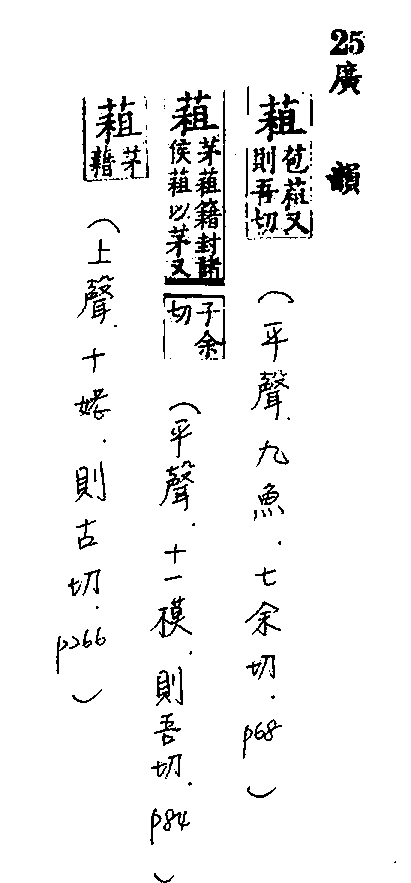 25
廣 韻
蒩 苞蒩又
則吾切
(平聲.九魚.七余切.p68)
蒩 茅蒩籍封諸
侯蒩以茅又
子余
切
(平聲.十一模.則吾切.p84)
蒩 茅
藉
(上聲.十姥.則古切.p266)